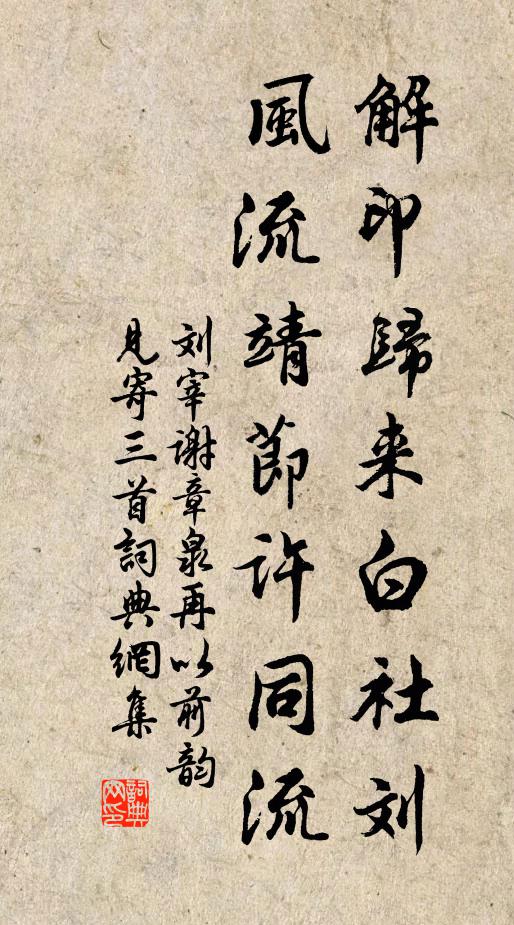 解印歸来白社刘
風流靖節許同流
刘宰谢章泉再以前韵
見寄三首詞典網集
詞典
网印